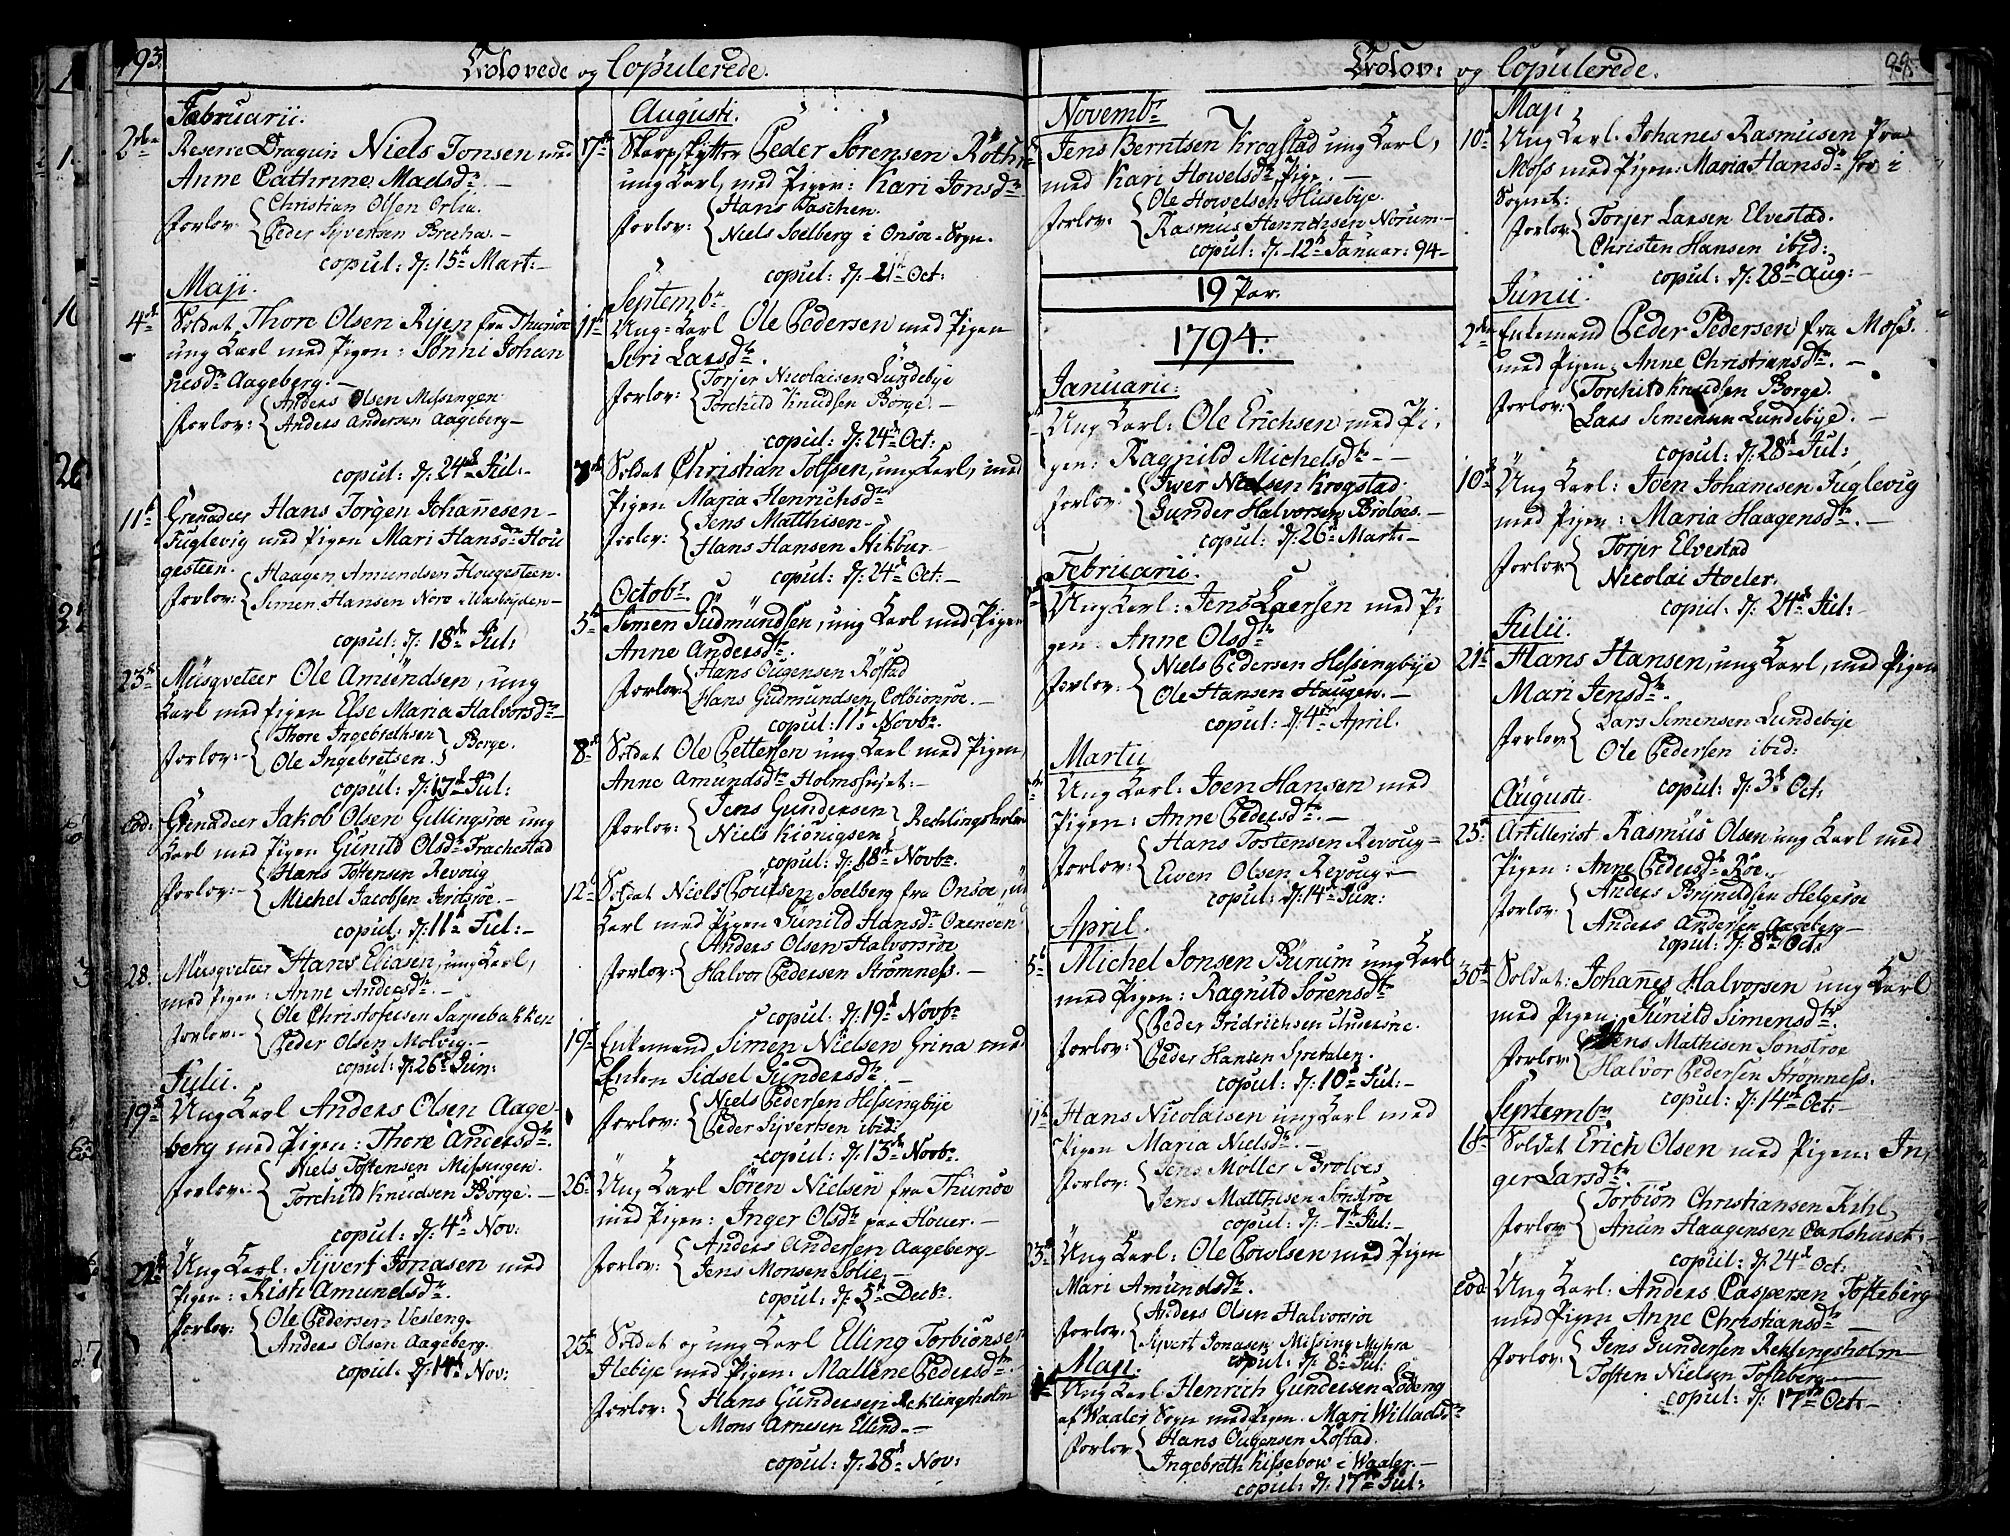 1793.
Trolovede og Copulerede.
Februarii.
2den Reserve Dragun Niels Jonsen med
Anne Cathrine Madsdr. —
Forlov: Christian Olsen Orlia.
Peder Syvertsen Breche. —
copul: d: 15de Mart: —
Maji.
4de Soldat Thore Olsen Rijen fra Thunøe
ung Karl med Pigen: Sønni Johan
nesdr Aageberg. —
Forlov: Anders Olsen Missingen
Anders Andersen Aageberg —
copul: d: 24de Jul: —
11te Grenadeer Hans Jørgen Johannesen
Fuglevig med Pigen Mari Hansdr Hou
gesteen.
Forlov: Haagen Amundsen Hougesteen.
Simen Hansen Nore
copul: d: 18de Jul:
23de Musqveteer Ole Amundsen, ung
Karl med Pigen Else Maria Halvorsdr —
Forlov: Thore Ingebretsen
Ole Ingebretsen. Borge.
copul: d: 17de Jul:
Eod: Grenadeer Jakob Olsen Gillingsrøe ung
Karl med Pigen Gunild Olsdr Frachestad
Forlov: Hans Tostensen Revoug
Michel Jacobsen
copul: d: 11te Jul: —
28. Musqveteer Hans Eliasen, ung Karl,
med Pigen: Anne Andersdr. —
Forlov: Ole Christofersen Sarpebakken
Peder Olsen Molvig. —
copul: d: 26de Jun:
Julii.
19de Ung Karl Anders Olsen Aage-
berg med Pigen: Thore Andersdr.
Forlov: Niels Tostensen Missingen.
Torchild Knudsen Borge. —
copul: d: 4de Nov:
Ung Karl: Syvert Jonasen med
Pigen: Kisti Amundsdr.
Forlov: Ole Pedersen Vesteng.
Anders Olsen Aageberg.
copul: d: 14de Nov:
Augusti.
17de Skarpskytter Peder Sørensen
ung Karl, med Pigen: Kari Jonsdr
Forlov: Hans Taschen.
Niels Soelberg i Onsøe-Sogn.
copul: d: 21de Oct:
Septembr
11te Ung Karl Ole Pedersen med Pigen
Siri Larsdr.
Forlov: Torjer Nicolaisen Lundebye
Torchild Knudsen Borge. —
copul: d: 24de Oct:
Soldat Christian Tolfsen, ung Karl, med
Pigen Maria Henrichsdr
Forlov: Jens Matthisen —
Hans Hansen
copul: d: 24de Oct: —
Octobr.
5te Simen Gudmundsen, ung Karl med Pigen
Anne Andersdr.
Forlov: Hans Ougensen Rostad
Hans Gudmundsen Colbiönröe. —
copul: 11te Novbr.
8de Soldat Ole Pettersen ung Karl med Pigen
Anne Amundsdr Holmshuset: —
Forlov: Jens Gundersen
Niels Kiönigsen Rechlingsholm
copul: d: 18de Novbr.
12te Soldat Niels Poulsen Soelberg fra Onsøe, un
Karl med Pigen Gunild Hansdr
Forlov: Anders Olsen Halvorsrøe
Halvor Pedersen Strømness. —
copul: d: 19de Novbr
19de Enkemand Simen Nielsen Grina med
Enken Sidsel Gundersdr. —
Forlov: Niels Pedersen Hissingbye
Peder Syvertsen ibid:
copul: d: 13de Novbr.
26de Ung Karl Søren Nielsen fra Thunøe
med Pigen: Inger Olsdr paa Houer. —
Forlov: Anders Andersen Aageberg —
Jens Monsen Solie. —
copul: d: 5te Decbr.
Soldat og ung Karl Elling Torbiönsen
Alebye med Pigen: Mallene Pedersdr. —
Forlov: Hans Gundersen Reklingsholm
Mons Arnesen Ellind —
copul: d: 28de Nov:
Trolov: og Copulerede.
Novembr
Jens Berntsen Krogstad ung Karl,
med Kari Howelsdr Pige. —
Forlov: Ole Howelsen Husebye.
Rasmus Henrichsen Norum —
copul: d: 12te Januar: 94 —
19 Par.
1794:
Januarii:
Ung Karl: Ole Erichsen med Pi-
gen: Ragnild Michelsdr —
Forlov: Iver Nielsen Krogstad
Gunder Halvorsen Broløs. —
copul: d: 26de Mart: —
Februarii.
Ung Karl: Jens Laersen med Pi
gen: Anne Olsdr
Forlov: Niels Pedersen Hissingbye
Ole Hansen Haugen. —
copul: d: 4de April.
Martii
Ung Karl: Joen Hansen med
Pigen: Anne Pedersdr. —
Forlov: Hans Tostensen Revoug —
Even Olsen Revoug —
copul: d: 14de Jun:
April.
5te Michel Jonsen Burum ung Karl
med Pigen: Ragnild Sørensdr
Forlov: Peder Fridrichsen
Peder Hansen Spetalen.
copul: d: 10de Jul: —
11te Hans Nicolaisen ung Karl med
Pigen Maria Nielsdr. —
Forlov: Jens Moller Broløs
Jens Matthisen Sonstrøe
copul: d: 7de Jul: —
23de Ung Karl: Ole Powlsen med Pigen
Mari Amundsdr.
Forlov: Anders Olsen Halvorsröe
Syvert Jonasen Missing Myhra
copul: d: 8de Jul:
Maji.
Ung Karl Henrich Gundersen Lodeng
af Waaler Sogn med Pigen: Mari Willadsdr
Forlov: Hans Ougensen Rostad
Ingebret Kissebow i Waaler —
copul: d: 17de Jul:
Maji
10de Ung Karl: Johanes Rasmusen fra
Moss med Pigen: Maria Hansdr her i
Sognet:
Forlov: Torjer Larsen Elvestad.
Christen Hansen ibid:
copul: d: 28de Aug: —
Junii.
2den Enkemand Peder Pedersen fra Moss.
med Pigen: Anne Christiansdr. —
Forlov: Torchild Knudsen Borge.
Lars Simensen Lundebye. —
copul: d: 28de Jul:
10de Ung Karl: Joen Johannsen Fuglevig
med Pigen: Maria Haagensdr. —
Forlov: Torjer Elvestad
Nicolai Hoeler.
copul: d: 24de Jul: —
Julii.
21de Hans Hansen, ung Karl, med Pigen
Mari Jensdr.
Forlov: Lars Simensen Lundebye
Ole Pedersen ibid:
copul: d: 3de Oct:
Augusti.
25de Artillerist Rasmus Olsen ung Karl med
Pigen: Anne Pedersdr Röe.
Forlov: Anders Brynildsen Helgerøe
Anders Andersen Aageberg —
copul: d: 8de Oct:
30te Soldat: Johannes Halvorsen ung Karl
med Pigen: Gunild Simensdr.
Forlov: Jens Mathisen Sonstrøe
Halvor Pedersen Strømness.
copul: d: 14de Oct: —
Septembr
16de Soldat Erich Olsen med Pigen: In-
ger Larsdr.
Forlov: Torbiön Christiansen Kihl,
Anun Haagensen Carlshuset. —
copul: d: 24de Oct:
Eod: Ung Karl: Anders Caspersen Tosteberg
med Pigen Anne Christiansdr —
Forlov: Jens Gundersen Reklingsholm —
Tosten Nielsen Tosteberg —
copul: d: 17de Oct: —